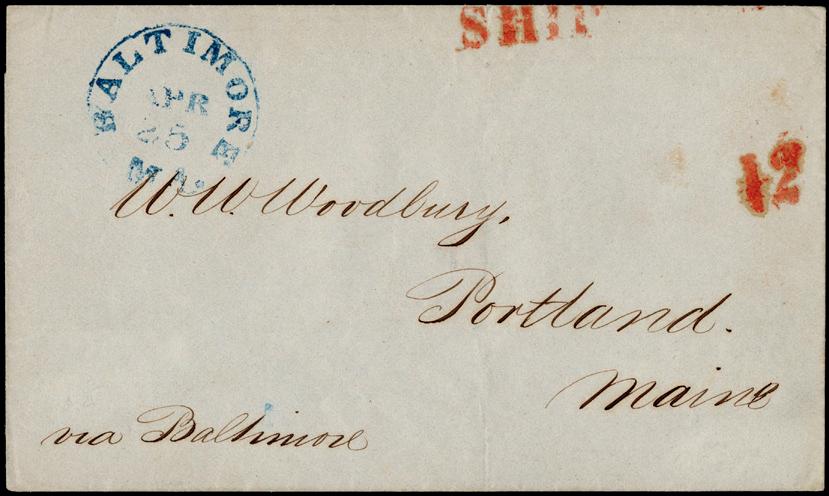 BALTIMORE
APR
25
Md.
SHIP
12
W. W. Woodbury,
Portland.
Maine
via Baltimore